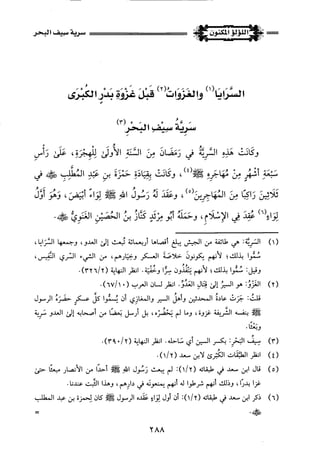 اللؤلؤ المكنون
سرية سيف البحر
السَّرَايَا(١) والغَزَوَاتُ(٢) قَبْلَ غَزْوَةِ بَدْرٍ الكُبْرَى
سَرِيَّةُ سِيفِ البَحْرِ(٣)
وكَانَتْ هَذِهِ السَّرِيَّةُ فِي رَمَضَانَ مِنَ السَّنَةِ الأُولَى لِلْهِجْرَةِ، عَلَى رَأْسِ
سَبْعَةِ أَشْهُرٍ مِنْ مُهَاجَرِهِ ﷺ(٤)، وكَانَتْ بِقِيَادَةِ حَمْزَةَ بنِ عَبْدِ المُطَّلِبِ ﷺ في
ثَلَاثِينَ رَاكِبًا مِنَ المُهَاجِرِينَ(٥)، وعَقَدَ لَهُ رَسُولُ اللهِ ﷺ لِوَاءً أَبْيَضَ، وَهُوَ أَوَّلُ
لِوَاءٍ(٦) عُقِدَ فِي الإِسْلَامِ، وحَمَلَهُ أَبُو مَرْثَدٍ كَنَّازُ بنُ الحُصَيْنِ الغَنَوِيُّ
(١) السَّرِيَّةُ: هي طائفة من الجيش يبلغ أقصاها أربعمائة تُبعث إلى العدو، وجمعها السَّرايا،
سُمُّوا بذلك؛ لأنهم يكونون خلاصة العسكر وخيارهم، من الشيء السَّري النَّفيس،
وقيل: سُمُّوا بذلك؛ لأنهم يَنْفُذُون سِرًّا وخُفْيَة. انظر النهاية (٣٢٦/٢)
(٢) الغَزْوُ: هو السيرُ إلى قِتَالِ العَدُوِّ. انظر لسان العرب (٦٧/١٠).
قلتُ: جَرَتْ عادةُ المحدثين وأهلُ السير والمغازي أن يُسموا كلَّ عسكرٍ حضَرَهُ الرسول
ﷺ بنفسه الشريفة غزوة، وما لم يَحْضُرْه، بل أرسل بَعضًا من أصحابه إلى العدو سَرِيَّة
وبَعْثًا.
(٣) سِيفُ البَحْرِ: بكسر السين أي سَاحله. انظر النهاية (٣٩٠/٢).
(٤) انظر الطَّبَقَات الكُبْرى لابن سعد (١/٢).
(٥) قال ابن سعد في طبقاته (١/٢): لم يبعث رَسُول الله ﷺ أحدًا من الأنصار مبعثًا حتى
غزا بدرًا، وذلك أنهم شرطوا له أنهم يمنعونه في دارهم، وهذا الثَّبت عندنا.
(٦) ذكر ابن سعد في طبقاته (١/٢): أن أول لواءٍ عقده الرسول ﷺ كان لِحمزة بن عبد المطلب
=
٢٨٨